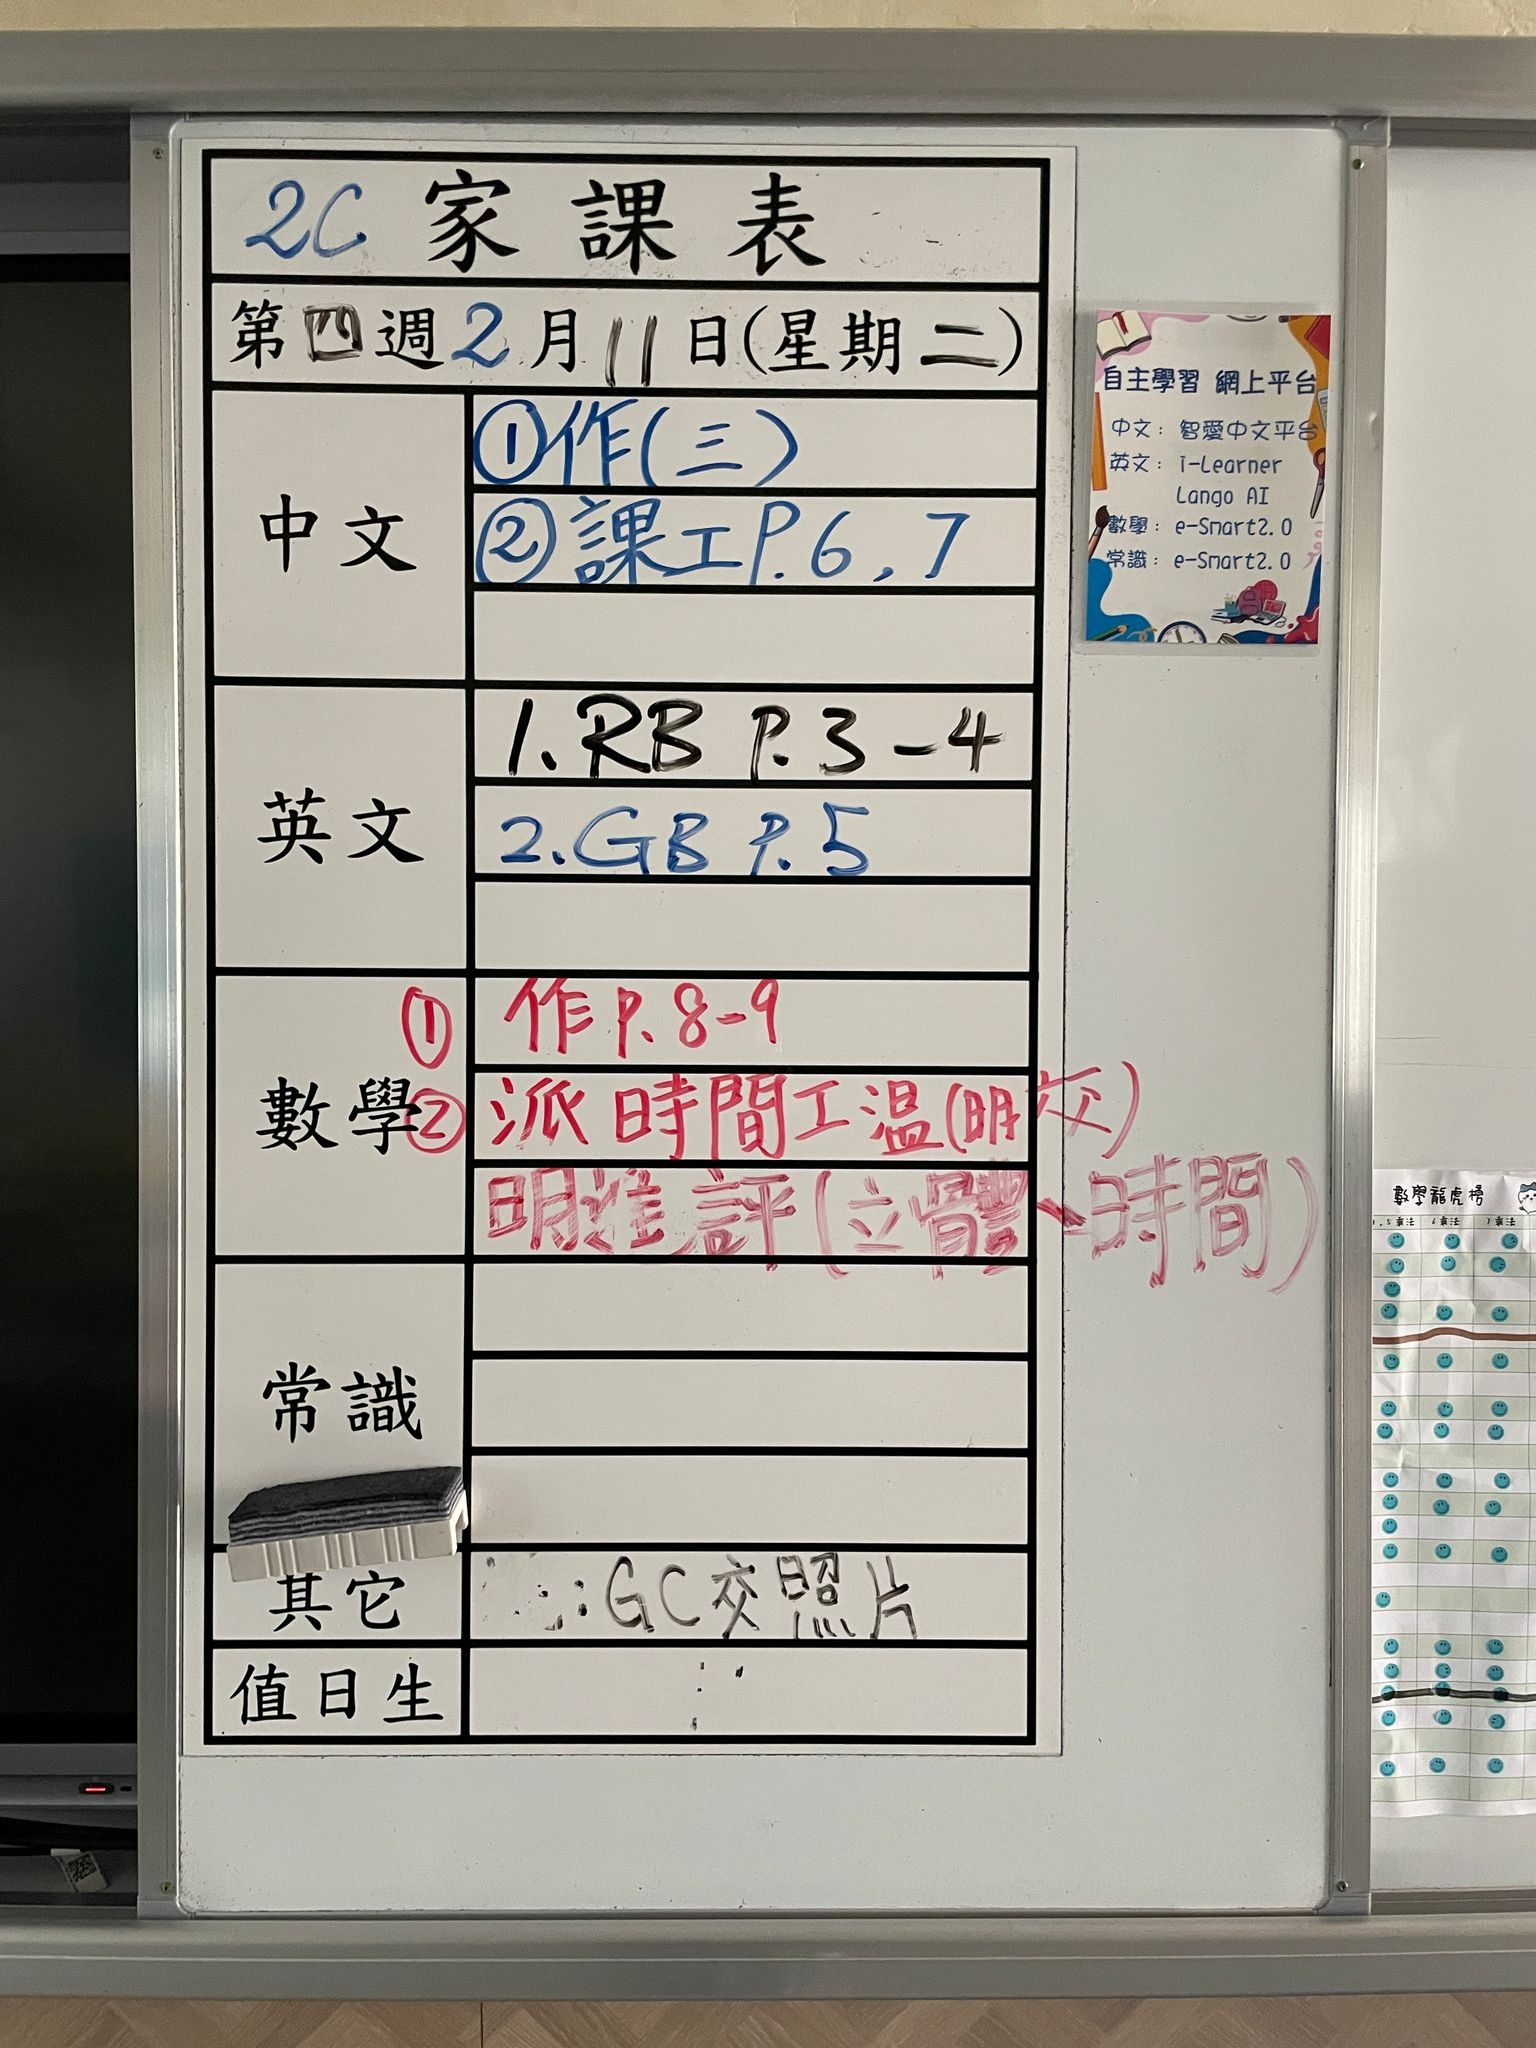 2C 家課表
第四週2月11日(星期二)
中文
①作(三)
②課工P.6,7
英文
1.RB P.3-4
2.GB P.5
數學
① 作P.8-9
② 派時間工溫(明交)
明進評(立體、時間)
常識
其它
GC交照片
值日生
自主學習 網上平台
中文：智愛中文平台
英文：i-Learner
Lango AI
數學：e-Smart2.0
常識：e-Smart2.0
數學龍虎榜